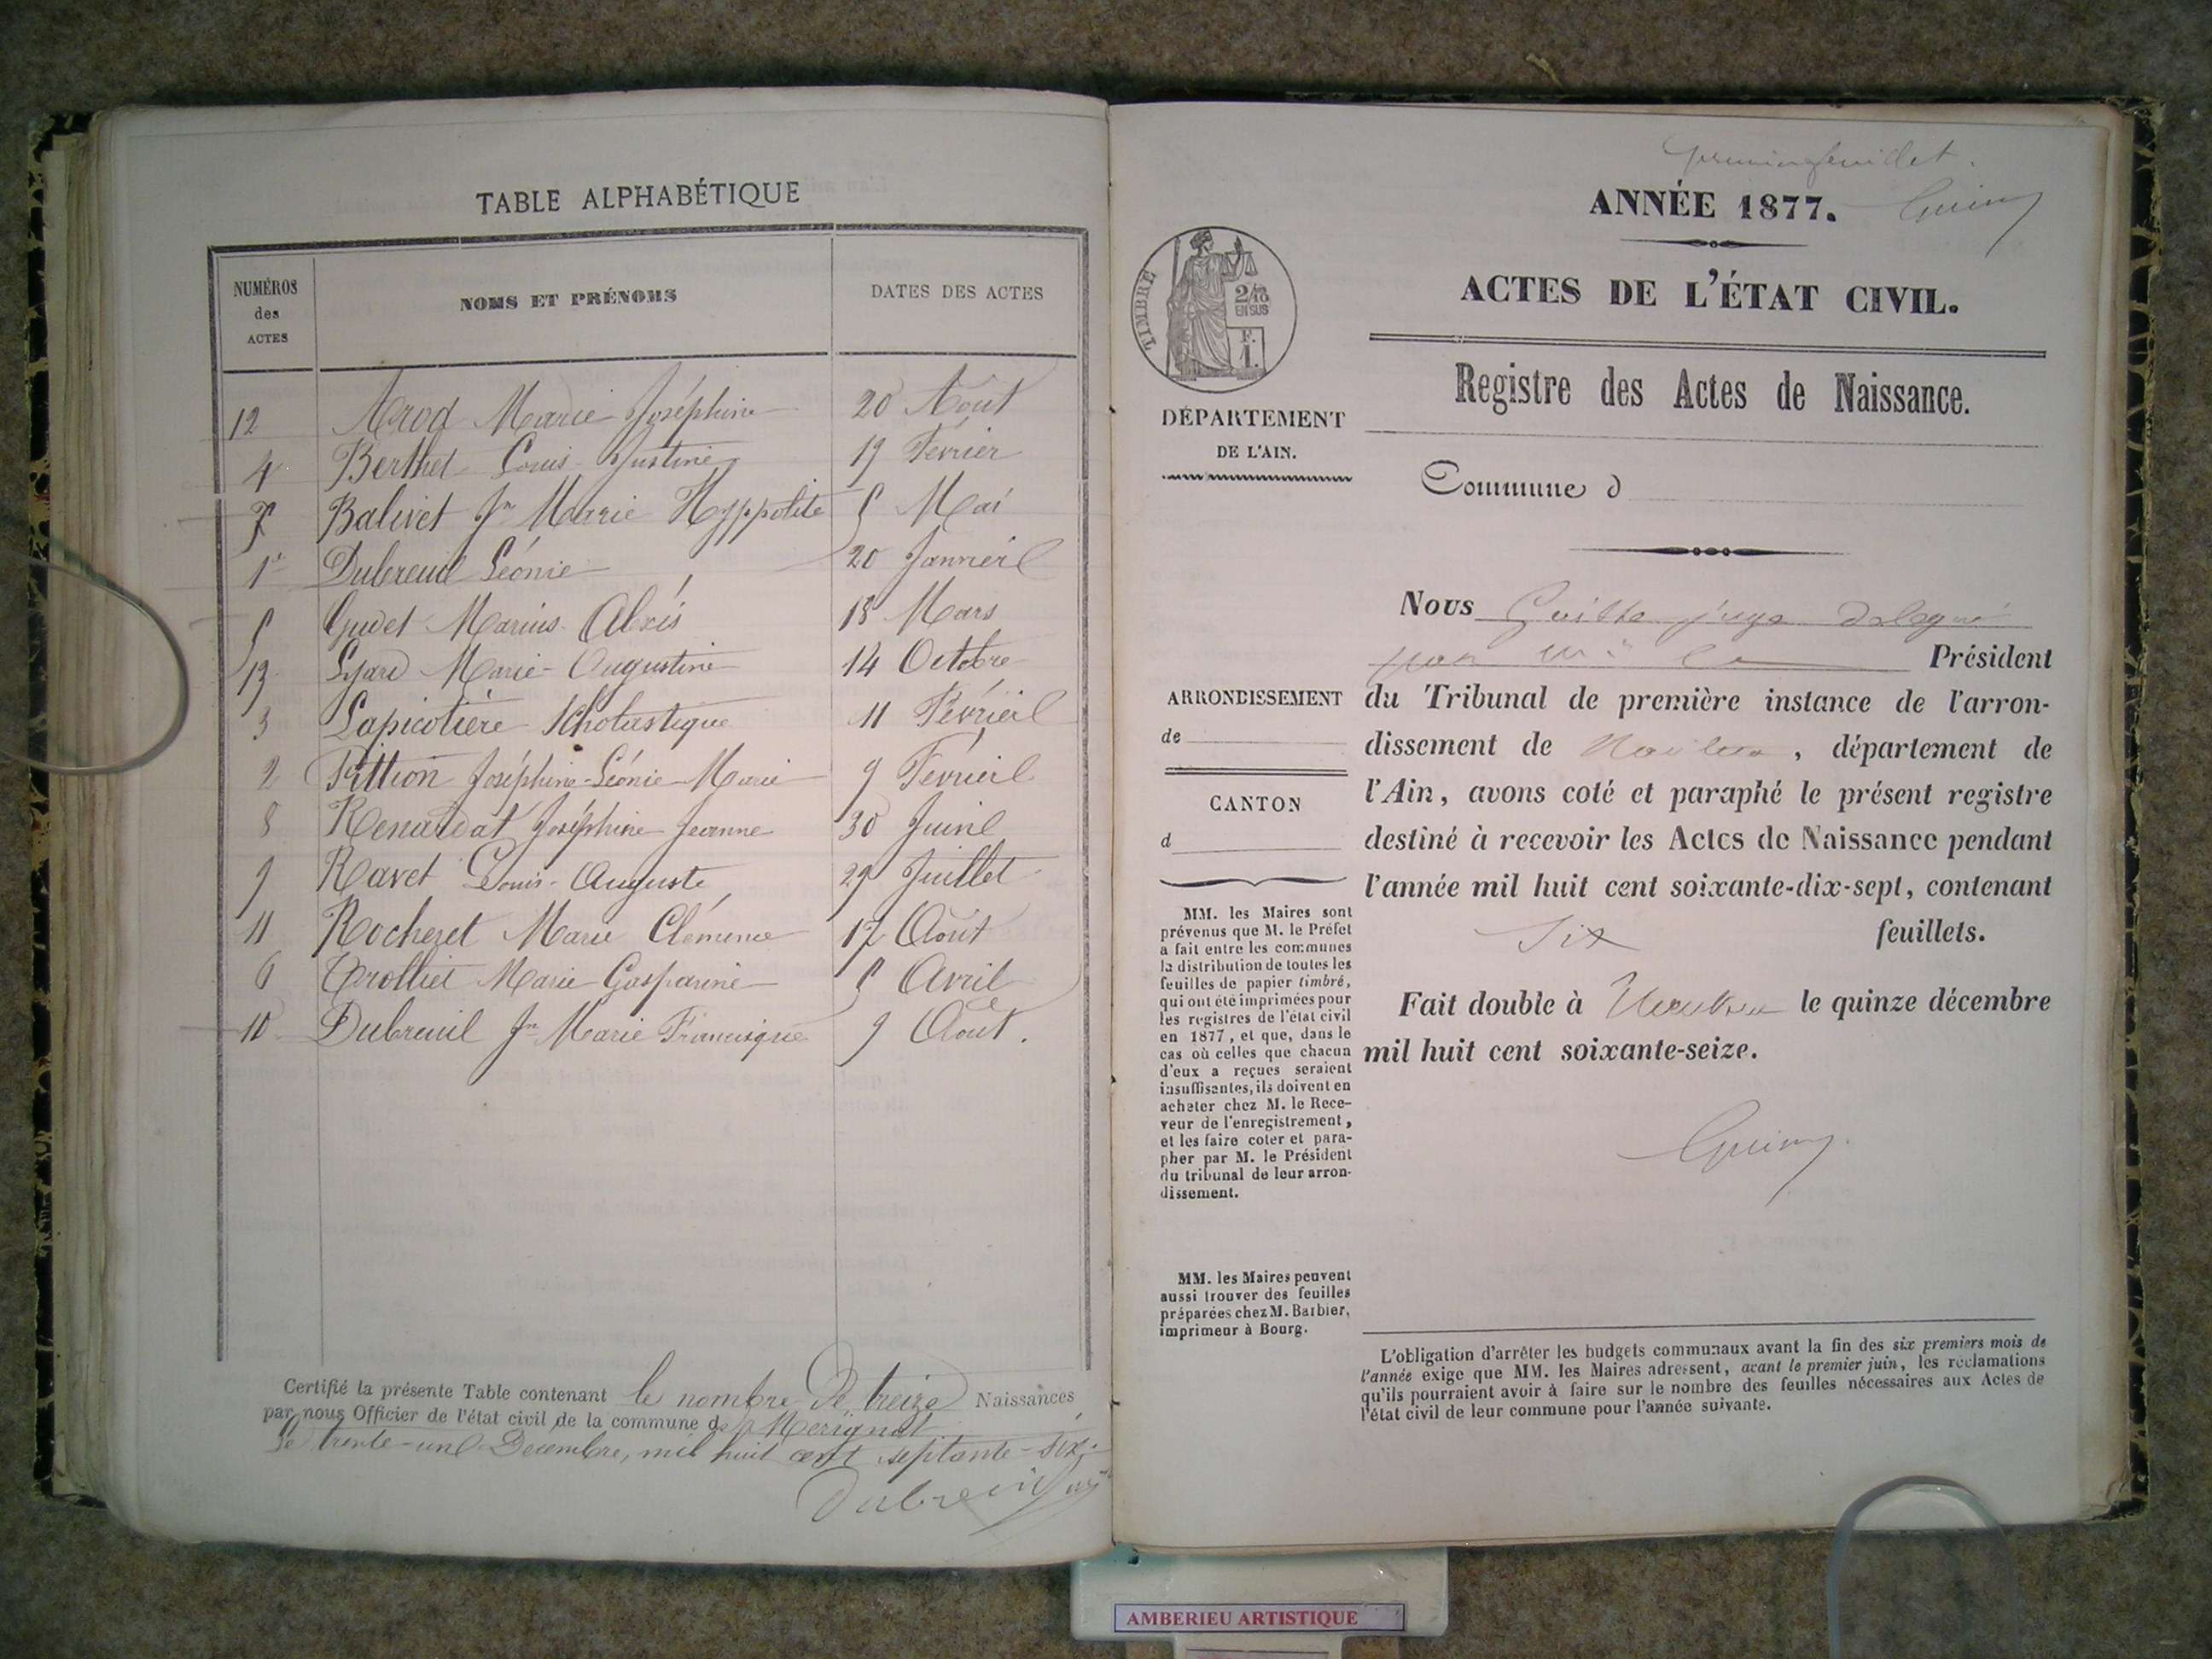 TABLE ALPHABÉTIQUE
NUMÉROS des ACTES
NOMS ET PRÉNOMS
DATES DES ACTES
12 Arod Marie Joséphine 20 Août
4 Berthet Louis Justine 19 Février
7 Balivet Jn Marie Hyppolite 5 Mai
1 Dubreuil Léonie 20 Janvier
5 Gudet Marius Alexis 18 Mars
13 Lyard Marie Augustine 14 Octobre
3 Lapicotière Scholastique 11 Février
2 Pittion Joséphine-Léonie-Marie 9 Février
8 Renardat Joséphine Jeanne 30 Juin
9 Ravet Louis-Auguste 29 Juillet
11 Rocheret Marie Clémence 17 Août
6 Trolliet Marie Gasparine 5 Avril
10 Dubreuil Jn Marie Francisque 9 Août.
Certifié la présente Table contenant le nombre de treize Naissances
par nous Officier de l'état civil de la commune de Mérignat
le trente-un Decembre, mil huit cent septante-six.
Dubreuil
feuillet.
ANNÉE 1877.
ACTES DE L'ÉTAT CIVIL.
TIMBRE
2/10
EN SUS
F.
1.
Registre des Actes de Naissance.
DÉPARTEMENT
DE L'AIN.
Commune d
Nous juge délégué
Président
ARRONDISSEMENT
de
du Tribunal de première instance de l'arron-
dissement de Nantua, département de
l'Ain, avons coté et paraphé le présent registre
CANTON
d
destiné à recevoir les Actes de Naissance pendant
l'année mil huit cent soixante-dix-sept, contenant
six feuillets.
Fait double à Nantua le quinze décembre
mil huit cent soixante-seize.
MM. les Maires sont
prévenus que M. le Préfet
a fait entre les communes
la distribution de toutes les
feuilles de papier timbré,
qui ont été imprimées pour
les registres de l'état civil
en 1877, et que, dans le
cas où celles que chacun
d'eux a reçues seraient
insuffisantes, ils doivent en
acheter chez M. le Rece-
veur de l'enregistrement,
et les faire coter et para-
pher par M. le Président
du tribunal de leur arron-
dissement.
MM. les Maires peuvent
aussi trouver des feuilles
préparées chez M. Barbier,
imprimeur à Bourg.
L'obligation d'arrêter les budgets communaux avant la fin des six premiers mois de
l'année exige que MM. les Maires adressent, avant le premier juin, les réclamations
qu'ils pourraient avoir à faire sur le nombre des feuilles nécessaires aux Actes de
l'état civil de leur commune pour l'année suivante.
AMBERIEU ARTISTIQUE